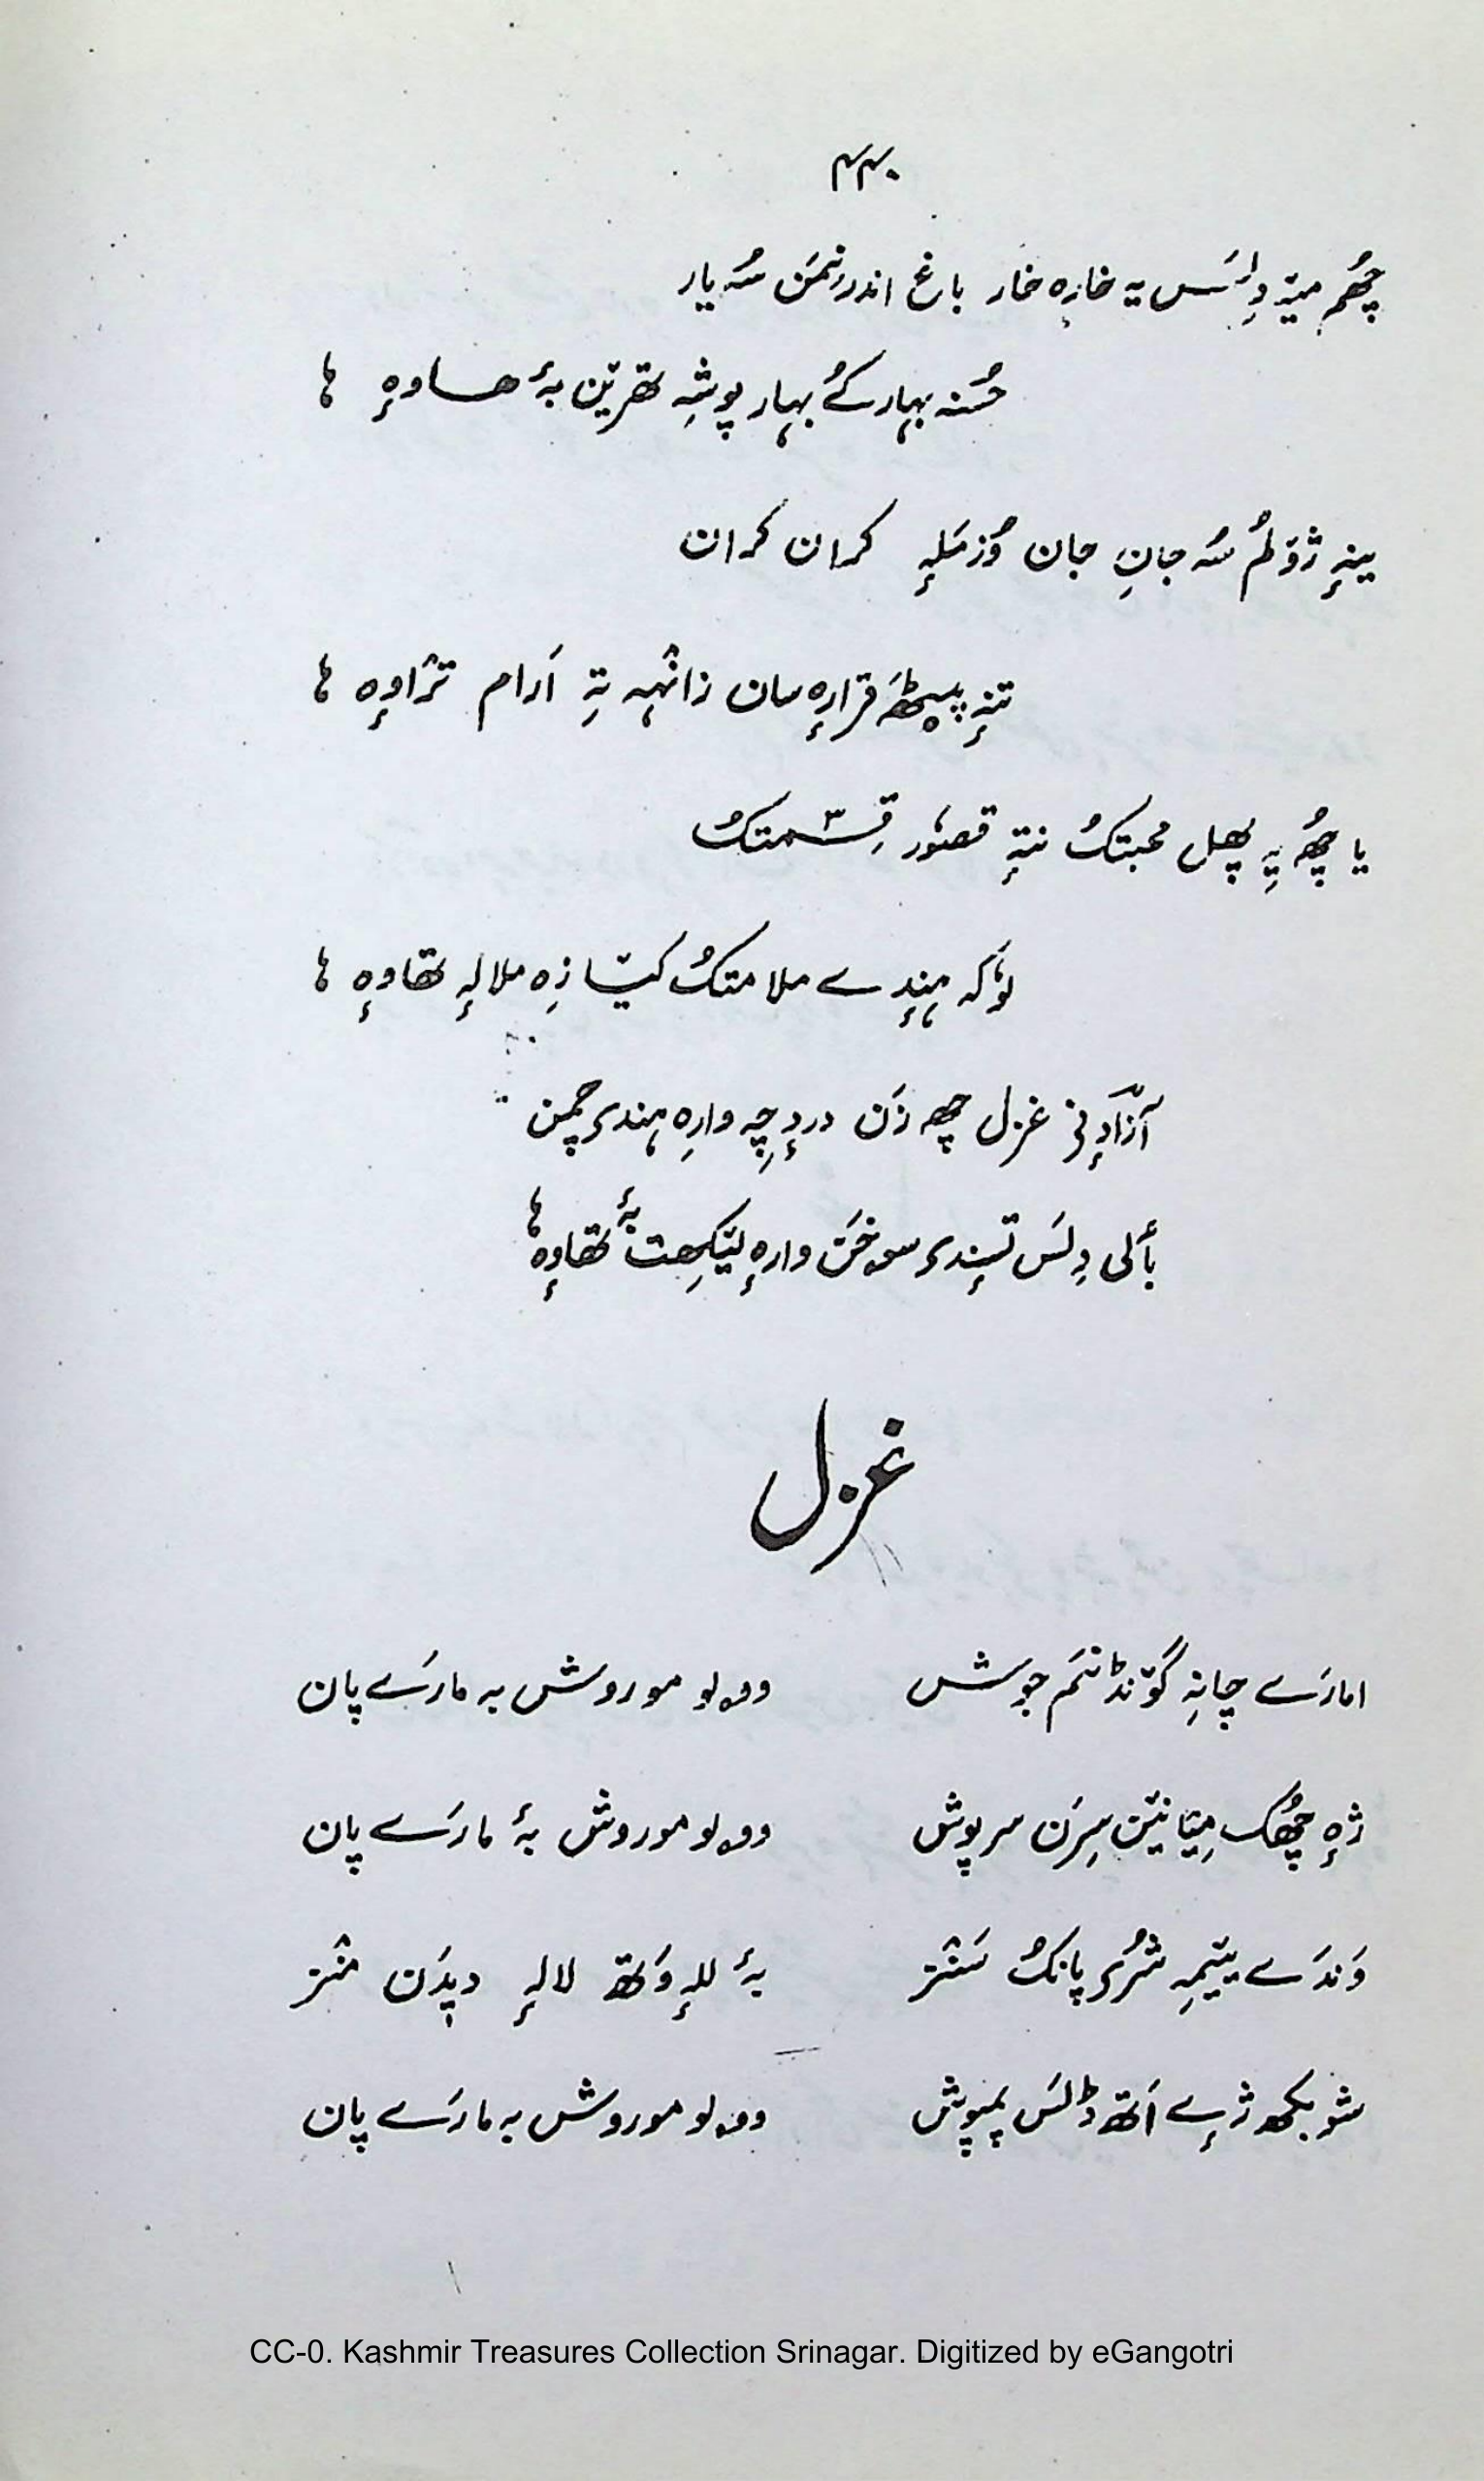 ۴۴۰
چھُم میٚہ دِلَس یہ خارہ خار باغ اندر نِمَن سُہ یار
حُسنہ بہار کے بہار پوشہِ تھرٮ۪ن بہٕ ہاوہٕ ہا
ینہٕ ژوٚلُم سُہ جانِ جان وُزمَلہٕ کران کران
تنہٕ پیٹھَ قرارہٕ سان زانٛہہ تہِ اَرام ترٛاوہٕ ہا
یا چھُہ یہِ پھل محبتکُ نتہٕ قصوٗر قِسمتکُ
لوٗکہ ہِندے ملامتکُ کیٛا زِہ ملالہٕ تھاوہٕ ہا
آزادٕنی غزل چھہ زَن دردٕچہِ وارِہ ہندۍ چمن
بٲلی دِلَس تسٕندۍ سوخَن وارہٕ لیٚکھِتھ بہٕ تھاوہٕ ہا
غزل
امارَے چانہِ گوٚنڈنَم جوش وولو مو روش بہ مارَے پان
ژہٕ چھُکھ میٛانیٚن سِرَن سرپوش وولو مو روش بہٕ مارَے پان
وَندَے یٚتیمہِ شُرۍ پانکُ سَنٛز بہٕ للہٕ وَتھ لالہٕ دیدَن منٛز
شوبکھ ژےٕ اَتھ ڈلَس پمپوش وولو مو روش بہ مارَے پان
CC-0. Kashmir Treasures Collection Srinagar. Digitized by eGangotri